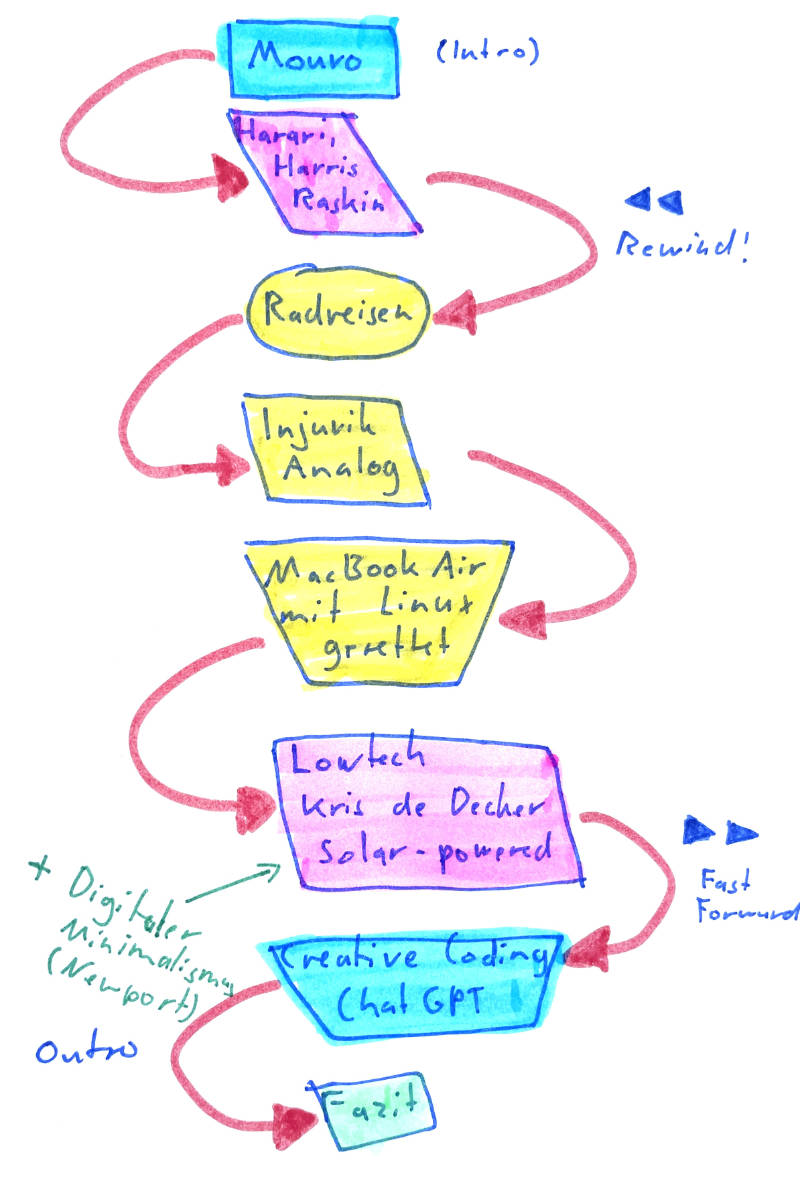 Mouro
(Intro)
Harari,
Harris
Raskin
Rewind!
Radreisen
Injurik
Analog
MacBook Air
mit Linux
grettet
Lowtech
Kris de Decher
Solar-powered
+ Digitaler
Minimalismus
(Newport)
Fast
Forward
Creative Coding
ChatGPT
Outro
Fazit